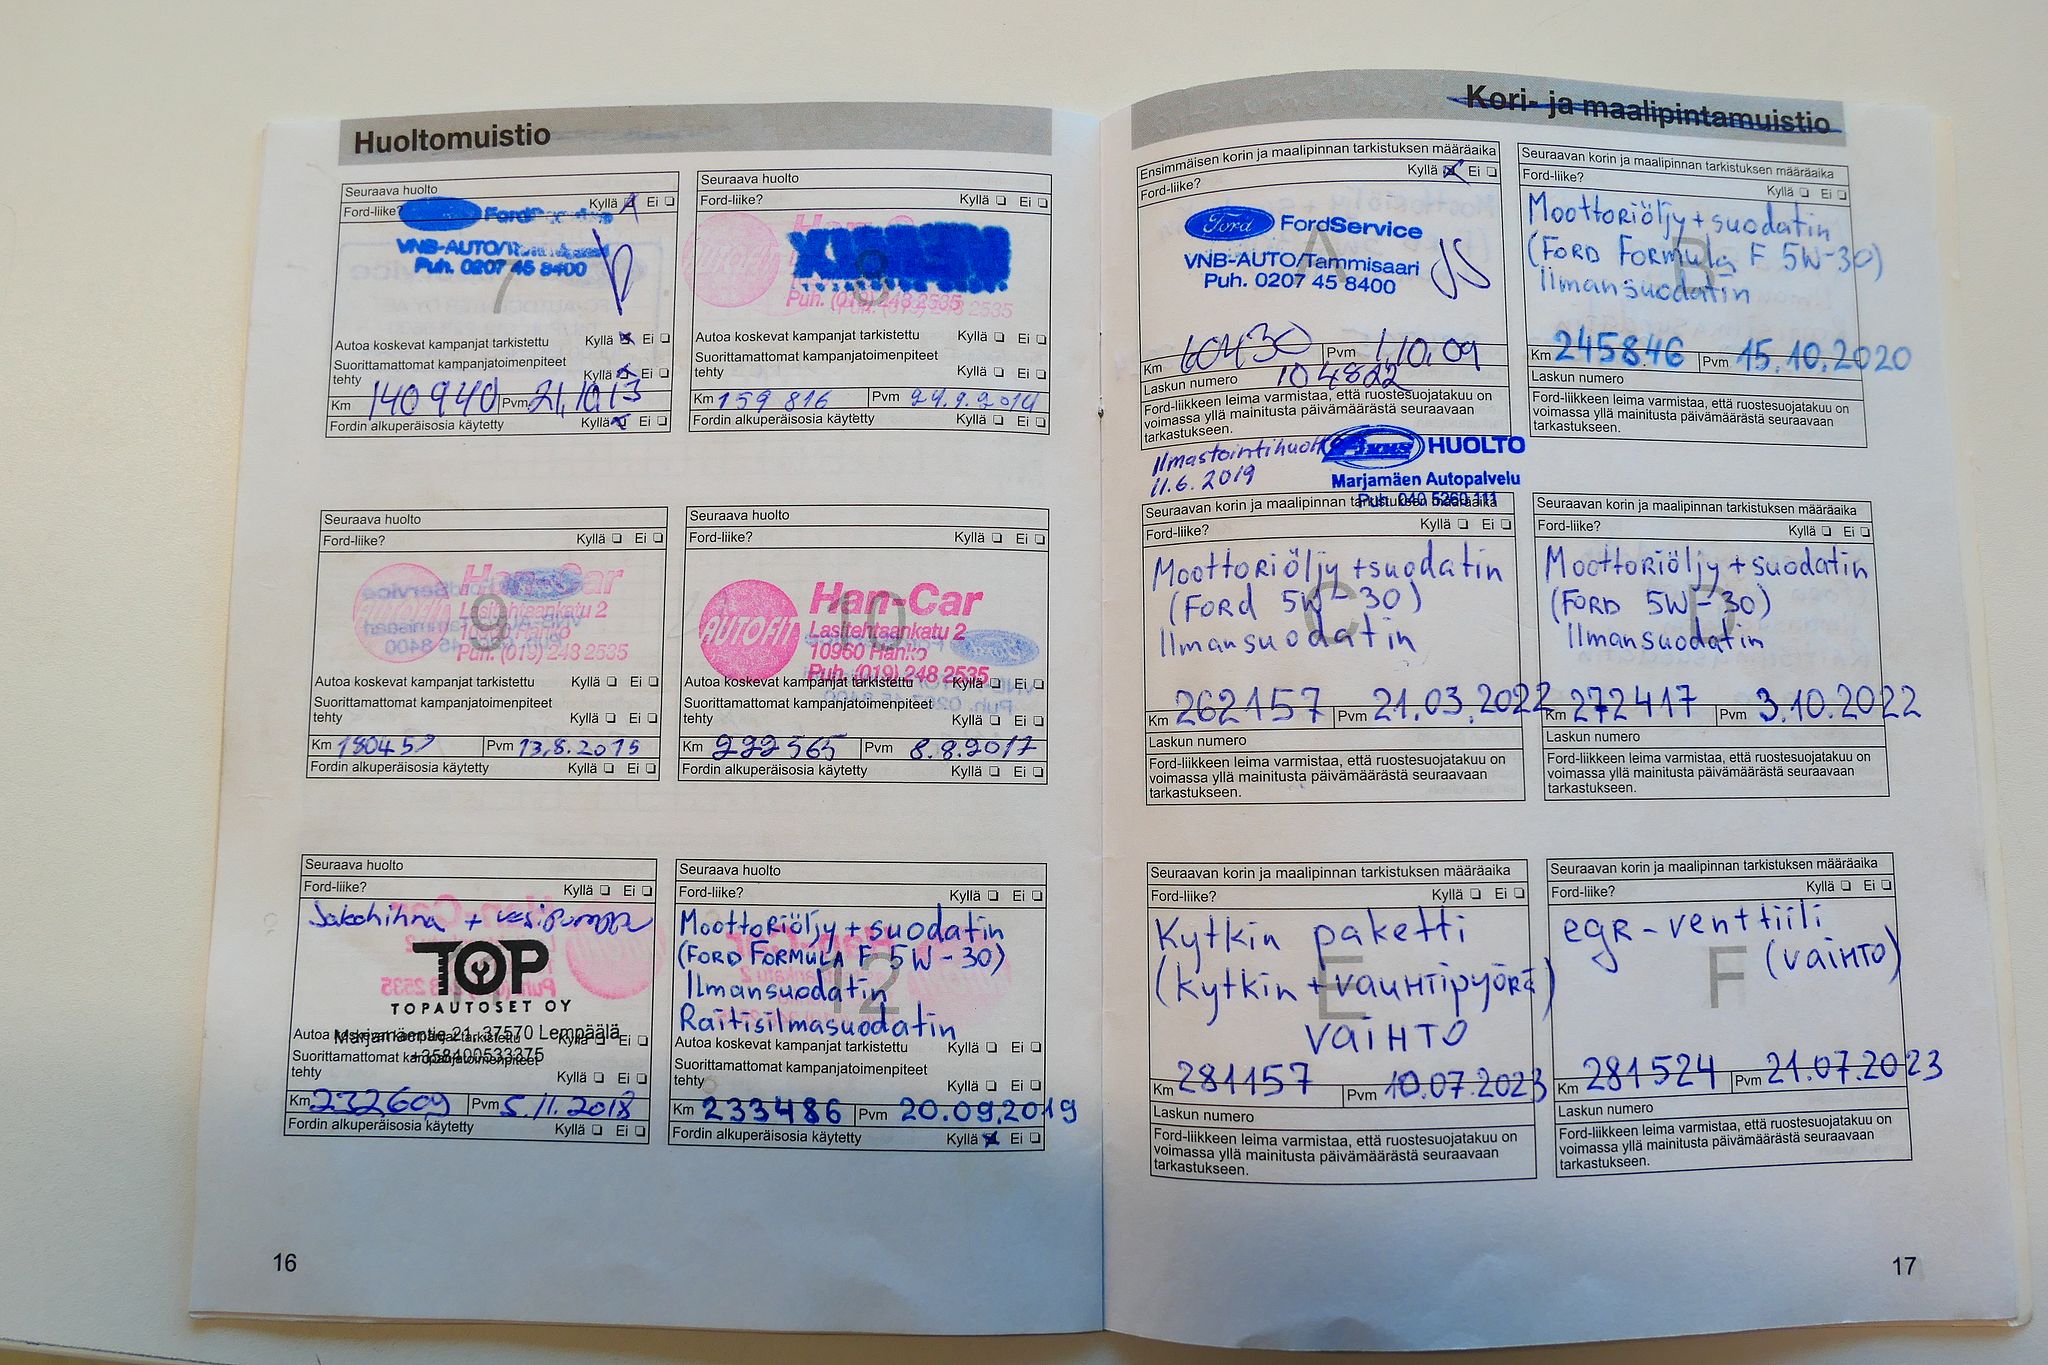 Huoltomuistio
Seuraava huolto
Ford-liike? Kyllä Ei
VNB-AUTO/
Puh. 0207 45 8400
7
Autoa koskevat kampanjat tarkistettu Kyllä Ei
Suorittamattomat kampanjatoimenpiteet
tehty Kyllä Ei
Km 140940 Pvm 21.10.13
Fordin alkuperäisosia käytetty Kyllä Ei
Seuraava huolto
Ford-liike? Kyllä Ei
8
Puh. (019) 248 2535
Autoa koskevat kampanjat tarkistettu Kyllä Ei
Suorittamattomat kampanjatoimenpiteet
tehty Kyllä Ei
Km 159 816 Pvm 24.9.2014
Fordin alkuperäisosia käytetty Kyllä Ei
Seuraava huolto
Ford-liike? Kyllä Ei
Han-Car
AUTOFIT
Lasitehtaankatu 2
10960 Hanko
Puh. (019) 248 2535
9
Autoa koskevat kampanjat tarkistettu Kyllä Ei
Suorittamattomat kampanjatoimenpiteet
tehty Kyllä Ei
Km Pvm 13.8.2015
Fordin alkuperäisosia käytetty Kyllä Ei
Seuraava huolto
Ford-liike? Kyllä Ei
Han-Car
AUTOFIT
Lasitehtaankatu 2
10960 Hanko
Puh. (019) 248 2535
10
Autoa koskevat kampanjat tarkistettu Kyllä Ei
Suorittamattomat kampanjatoimenpiteet
tehty Kyllä Ei
Km 222565 Pvm 8.8.2017
Fordin alkuperäisosia käytetty Kyllä Ei
Seuraava huolto
Ford-liike? Kyllä Ei
Jakohihna + vesipumppu
TOP
TOPAUTOSET OY
Marjamäentie 21, 37570 Lempäälä
+358400533375
Autoa koskevat kampanjat tarkistettu Kyllä Ei
Suorittamattomat kampanjatoimenpiteet
tehty Kyllä Ei
Km 232609 Pvm 5.11.2018
Fordin alkuperäisosia käytetty Kyllä Ei
Seuraava huolto
Ford-liike? Kyllä Ei
Moottoriöljy + suodatin
(FORD FORMULA F 5W-30)
Ilmansuodatin
Raitisilmasuodatin
12
Autoa koskevat kampanjat tarkistettu Kyllä Ei
Suorittamattomat kampanjatoimenpiteet
tehty Kyllä Ei
Km 233486 Pvm 20.09.2019
Fordin alkuperäisosia käytetty Kyllä Ei
16
Kori- ja maalipintamuistio
Ensimmäisen korin ja maalipinnan tarkistuksen määräaika
Ford-liike? Kyllä Ei
Ford FordService
VNB-AUTO/Tammisaari
Puh. 0207 45 8400
A
Km 60430 Pvm 1.10.09
Laskun numero 104822
Ford-liikkeen leima varmistaa, että ruostesuojatakuu on
voimassa yllä mainitusta päivämäärästä seuraavaan
tarkastukseen.
Seuraavan korin ja maalipinnan tarkistuksen määräaika
Ford-liike? Kyllä Ei
Moottoriöljy + suodatin
(FORD FORMULA F 5W-30)
Ilmansuodatin
B
Km 245846 Pvm 15.10.2020
Laskun numero
Ford-liikkeen leima varmistaa, että ruostesuojatakuu on
voimassa yllä mainitusta päivämäärästä seuraavaan
tarkastukseen.
Ilmastointihuolto
11.6.2019
HUOLTO
Marjamäen Autopalvelu
Puh. 040 5260 111
Seuraavan korin ja maalipinnan tarkistuksen määräaika
Ford-liike? Kyllä Ei
Moottoriöljy + suodatin
(Ford 5W-30)
Ilmansuodatin
C
Km 262157 Pvm 21.03.2022
Laskun numero
Ford-liikkeen leima varmistaa, että ruostesuojatakuu on
voimassa yllä mainitusta päivämäärästä seuraavaan
tarkastukseen.
Seuraavan korin ja maalipinnan tarkistuksen määräaika
Ford-liike? Kyllä Ei
Moottoriöljy + suodatin
(FORD 5W-30)
Ilmansuodatin
D
Km 272417 Pvm 3.10.2022
Laskun numero
Ford-liikkeen leima varmistaa, että ruostesuojatakuu on
voimassa yllä mainitusta päivämäärästä seuraavaan
tarkastukseen.
Seuraavan korin ja maalipinnan tarkistuksen määräaika
Ford-liike? Kyllä Ei
Kytkin paketti
(kytkin + vauhtipyörä)
VAIHTO
E
Km 281157 Pvm 10.07.2023
Laskun numero
Ford-liikkeen leima varmistaa, että ruostesuojatakuu on
voimassa yllä mainitusta päivämäärästä seuraavaan
tarkastukseen.
Seuraavan korin ja maalipinnan tarkistuksen määräaika
Ford-liike? Kyllä Ei
egr-venttiili
(VAIHTO)
F
Km 281524 Pvm 21.07.2023
Laskun numero
Ford-liikkeen leima varmistaa, että ruostesuojatakuu on
voimassa yllä mainitusta päivämäärästä seuraavaan
tarkastukseen.
17